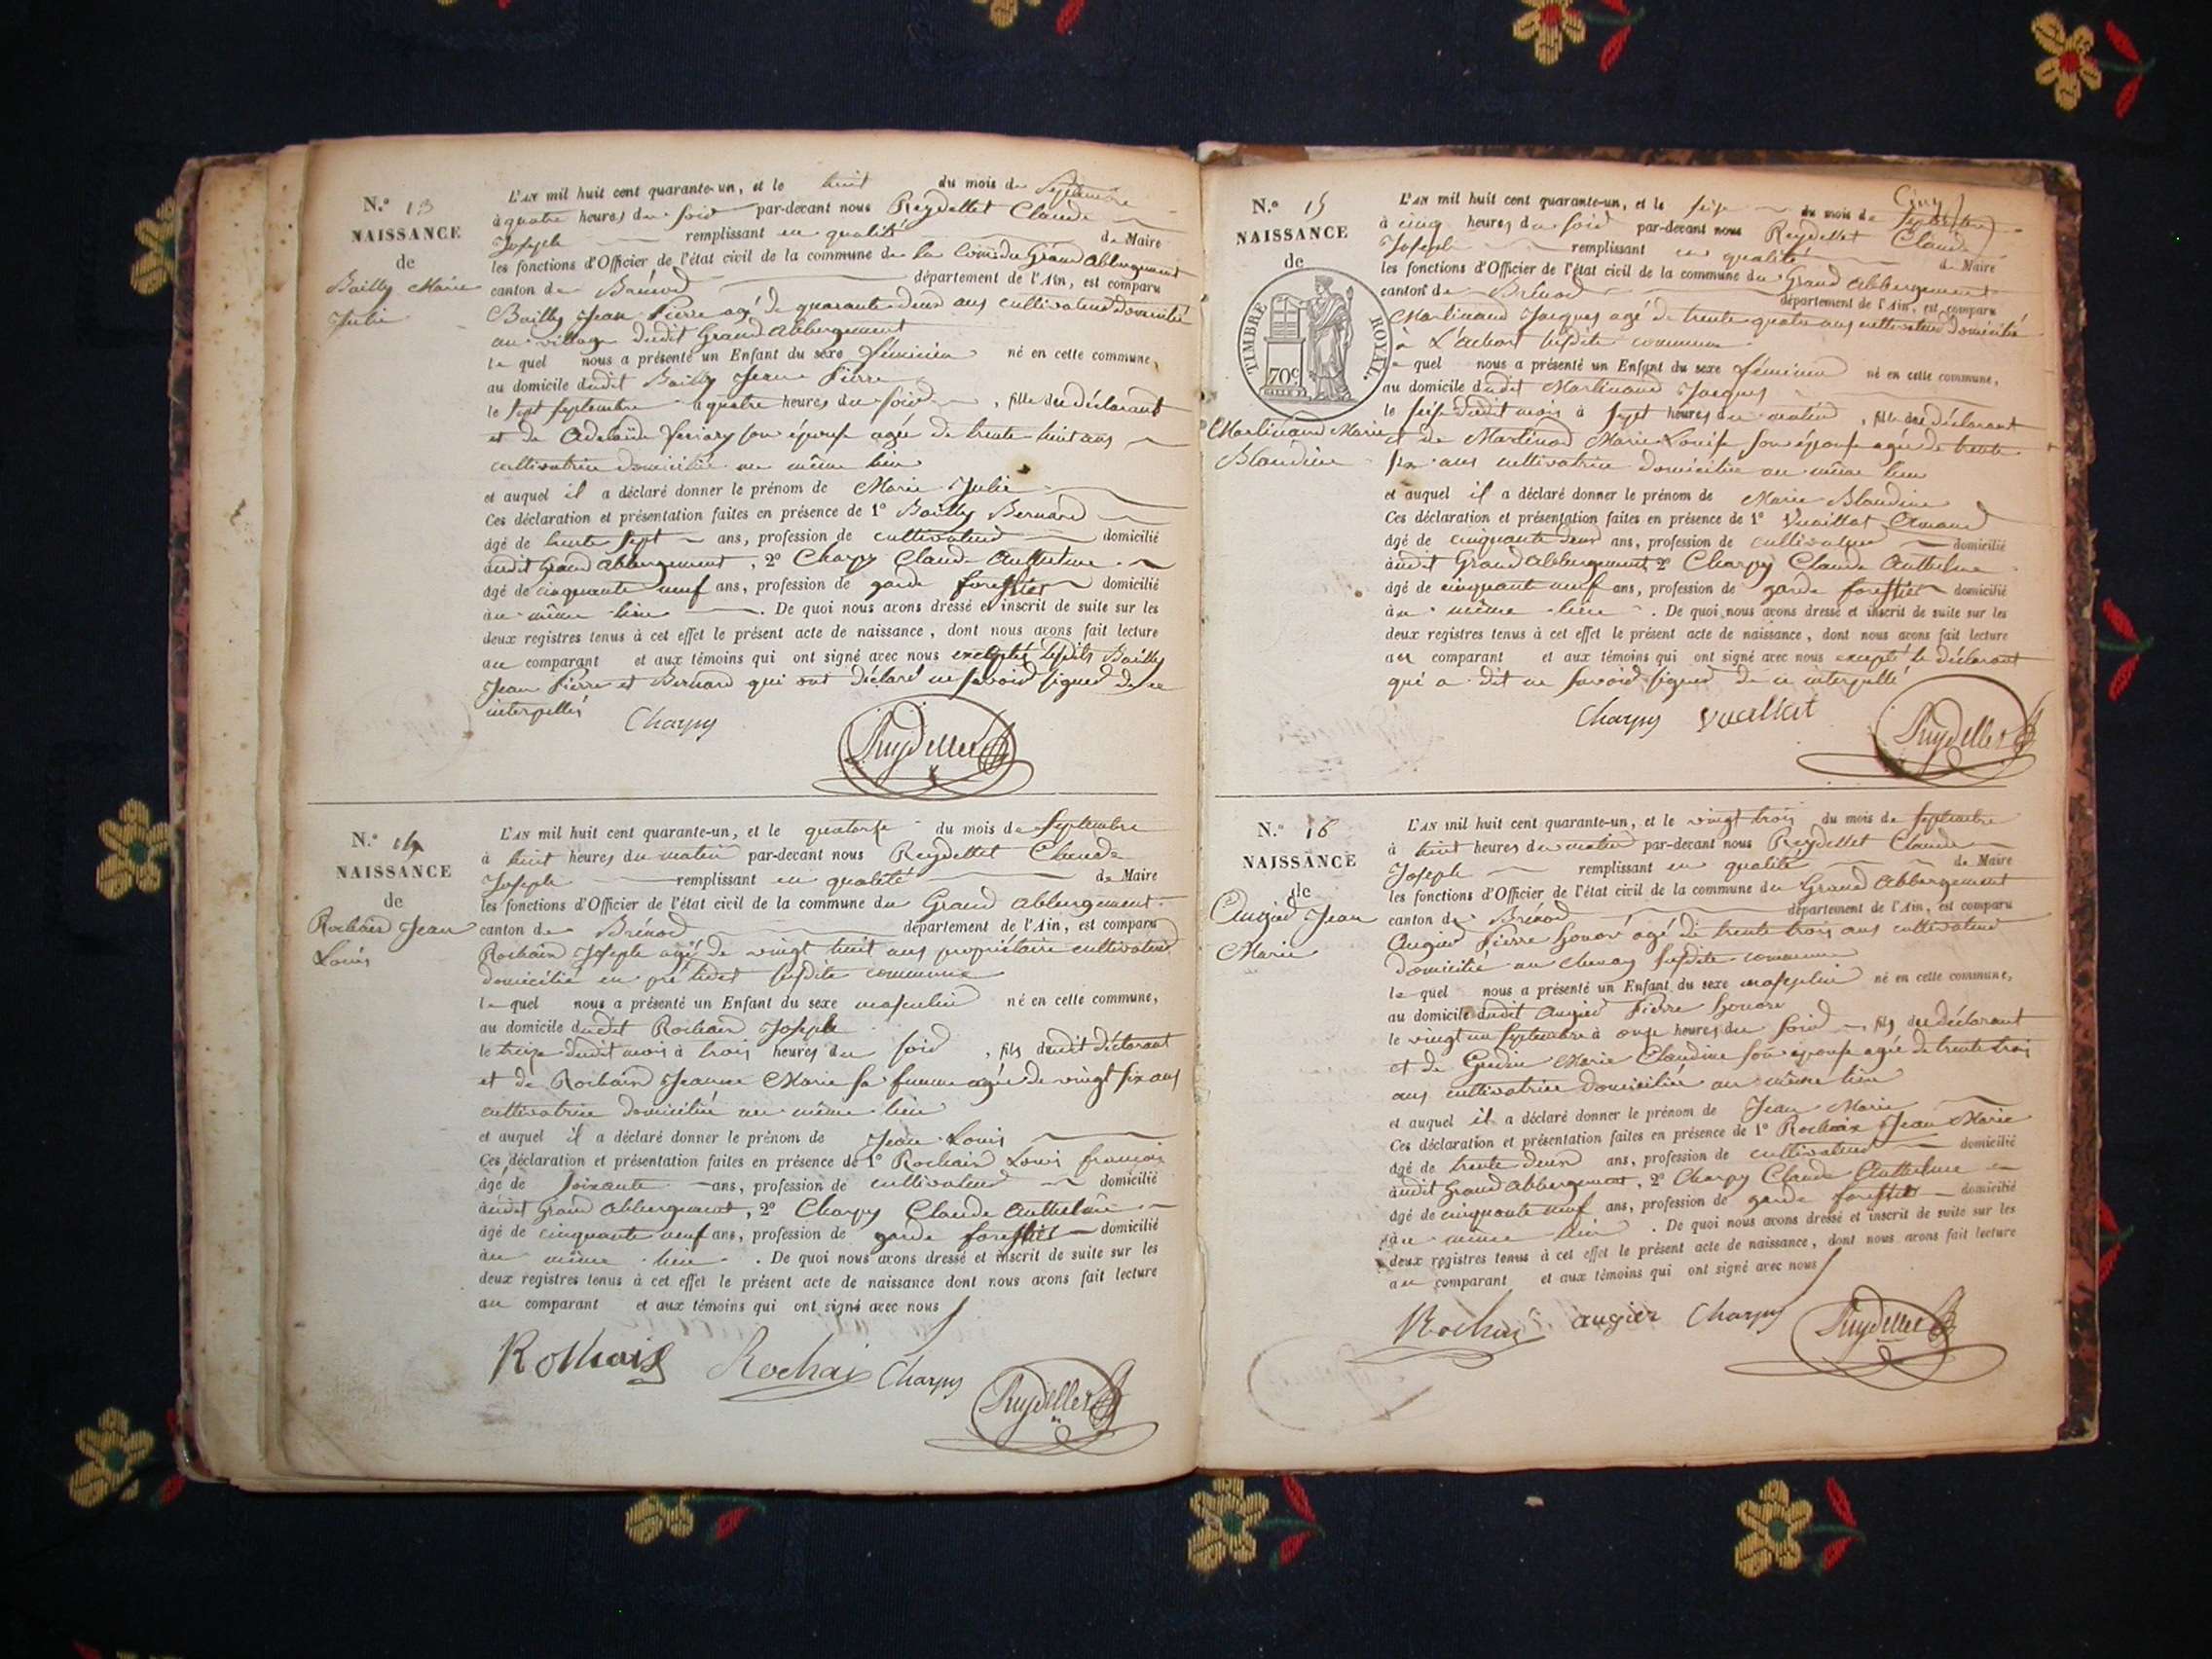 N.º 13
NAISSANCE
de
Bailly Marie
Julie
L'AN mil huit cent quarante-un, et le huit du mois de Septembre
à quatre heures du soir par-devant nous Reydellet Claude
Joseph remplissant en qualité de Maire
les fonctions d'Officier de l'état civil de la commune de la Comᵉ du Grand Abbergement
canton de Brénod département de l'Ain, est comparu
Bailly Jean Pierre agé de quarante deux ans cultivateur domicilié
au village dudit Grand Abbergement
le quel nous a présenté un Enfant du sexe féminin né en cette commune,
au domicile dudit Bailly Jean Pierre
le sept septembre à quatre heures du soir, fille du déclarant
et de Adelaïde son épouse agée de trente huit ans
cultivatrice domiciliée au même lieu
et auquel il a déclaré donner le prénom de Marie Julie
Ces déclaration et présentation faites en présence de 1º Bailly Bernard
âgé de trente sept ans, profession de cultivateur domicilié
audit Grand Abbergement, 2º Charpy Claude Anthelme
âgé de cinquante neuf ans, profession de garde forestier domicilié
au même lieu. De quoi nous avons dressé et inscrit de suite sur les
deux registres tenus à cet effet le présent acte de naissance, dont nous avons fait lecture
au comparant et aux témoins qui ont signé avec nous exceptés lesdits Bailly
Jean Pierre et Bernard qui ont déclaré ne savoir signer de ce
interpellés
Charpy Reydellet
N.º 14
NAISSANCE
de
Rochaix Jean
Louis
L'AN mil huit cent quarante-un, et le quatorze du mois de Septembre
à huit heures du matin par-devant nous Reydellet Claude
Joseph remplissant en qualité de Maire
les fonctions d'Officier de l'état civil de la commune du Grand Abbergement
canton de Brénod département de l'Ain, est comparu
Rochaix Joseph agé de vingt huit ans propriétaire cultivateur
domicilié en susdite commune
le quel nous a présenté un Enfant du sexe masculin né en cette commune,
au domicile dudit Rochaix Joseph
le treize dudit mois à trois heures du soir, fils dudit déclarant
et de Rochaix Jeanne Marie sa femme agée de vingt six ans
cultivatrice domiciliée au même lieu
et auquel il a déclaré donner le prénom de Jean Louis
Ces déclaration et présentation faites en présence de 1º Rochaix Louis françois
âgé de soixante ans, profession de cultivateur domicilié
audit Grand Abbergement, 2º Charpy Claude Anthelme
âgé de cinquante neuf ans, profession de garde forestier domicilié
au même lieu. De quoi nous avons dressé et inscrit de suite sur les
deux registres tenus à cet effet le présent acte de naissance dont nous avons fait lecture
au comparant et aux témoins qui ont signé avec nous
Rochaix Rochaix Charpy Reydellet
Cinq
N.º 15
NAISSANCE
de
TIMBRE ROYAL.
70c
Martinand Marie
Blandine
L'AN mil huit cent quarante-un, et le seize du mois de Septembre
à cinq heures du soir par-devant nous Reydellet Claude
Joseph remplissant en qualité de Maire
les fonctions d'Officier de l'état civil de la commune du Grand Abbergement
canton de Brénod département de l'Ain, est comparu
Martinand Jacques agé de trente quatre ans cultivateur domicilié
à susdite commune
le quel nous a présenté un Enfant du sexe féminin né en cette commune,
au domicile dudit Martinand Jacques
le seize dudit mois à sept heures du matin, fille du déclarant
et de Martinod Marie Louise son épouse agée de trente
six ans cultivatrice domiciliée au même lieu
et auquel il a déclaré donner le prénom de Marie Blandine
Ces déclaration et présentation faites en présence de 1º Vuaillat Amand
âgé de cinquante deux ans, profession de cultivateur domicilié
audit Grand Abbergement 2º Charpy Claude Anthelme
âgé de cinquante neuf ans, profession de garde forestier domicilié
au même lieu. De quoi nous avons dressé et inscrit de suite sur les
deux registres tenus à cet effet le présent acte de naissance, dont nous avons fait lecture
au comparant et aux témoins qui ont signé avec nous excepté le déclarant
qui a dit ne savoir signer de ce interpellé
Charpy Vuaillat Reydellet
N.º 16
NAISSANCE
de
Augier Jean
Marie
L'AN mil huit cent quarante-un, et le vingt trois du mois de Septembre
à huit heures du matin par-devant nous Reydellet Claude
Joseph remplissant en qualité de Maire
les fonctions d'Officier de l'état civil de la commune du Grand Abbergement
canton de Brénod département de l'Ain, est comparu
Augier Pierre honoré agé de trente trois ans cultivateur
domicilié au susdite commune
le quel nous a présenté un Enfant du sexe masculin né en cette commune,
au domicile dudit Augier Pierre honoré
le vingt un Septembre à onze heures du soir, fils du déclarant
et de Marie Claudine son épouse agée de trente trois
ans cultivatrice domiciliée au même lieu
et auquel il a déclaré donner le prénom de Jean Marie
Ces déclaration et présentation faites en présence de 1º Rochaix Jean Marie
âgé de trente deux ans, profession de cultivateur domicilié
audit Grand Abbergement, 2º Charpy Claude Anthelme
âgé de cinquante neuf ans, profession de garde forestier domicilié
au même lieu. De quoi nous avons dressé et inscrit de suite sur les
deux registres tenus à cet effet le présent acte de naissance, dont nous avons fait lecture
au comparant et aux témoins qui ont signé avec nous
Rochaix augier Charpy Reydellet